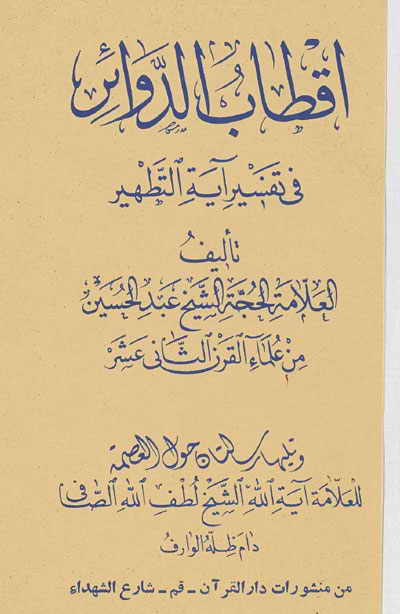 اقطاب الدَّوائر
في تفسير آية التطهير
تأليفُ
العلّامة الحجّة الشيخ عبد الحسين
من علماء القرن الثاني عشر
وتليها رسالتان حول العصمة
للعلّامة آية الله الشيخ لطف الله الصافي
دام ظله الوارف
من منشورات دار القرآن ـ قم ـ شارع الشهداء